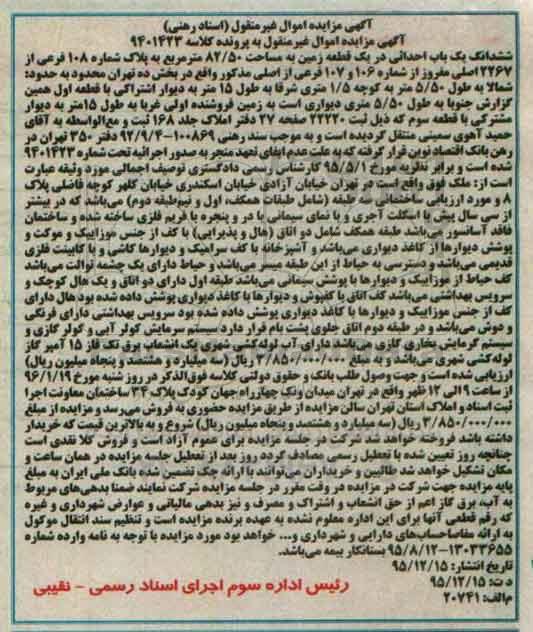 آگهی مزایده اموال غیرمنقول (اسناد رهنی)
آگهی مزایده اموال غیرمنقول به پرونده کلاسه ۹۴۰۱۴۲۳
ششدانگ یک باب احداثی در یک قطعه زمین به مساحت ۸۲/۵۰ مترمربع به پلاک شماره ۱۰۸ فرعی از
۲۲۶۷ اصلی مفروز از شماره ۱۰۶ و ۱۰۷ فرعی از اصلی مذکور واقع در بخش ده تهران محدود به حدود:
شمالا به طول ۵/۵۰ متر به کوچه ۱/۵ متری شرقا به طول ۱۵ متر به دیوار اشتراکی با قطعه اول همین
گزارش جنوبا به طول ۵/۵۰ متری دیواری است به زمین فروشنده اولی غربا به طول ۱۵متر به دیوار
مشترکی با قطعه سوم که ذیل ثبت ۲۲۲۲۰ صفحه ۲۷ دفتر املاک جلد ۱۶۸ ثبت و مع‌الواسطه به آقای
حمید آهوی سمینی منتقل گردیده است و به موجب سند رهنی ۱۰۰۸۶۹-۹۲/۹/۴ دفتر ۳۵۰ تهران در
رهن بانک اقتصاد نوین قرار گرفته که به علت عدم ایفای تعهد منجر به صدور اجرائیه تحت شماره ۹۴۰۱۴۲۳
شده است و برابر نظریه مورخ ۹۵/۵/۱ کارشناس رسمی دادگستری توصیف اجمالی مورد وثیقه عبارت
است از: ملک فوق واقع است در تهران خیابان آزادی خیابان اسکندری خیابان کلهر کوچه فاضلی پلاک
۸ و مورد ارزیابی ساختمانی سه طبقه (شامل طبقات همکف، اول و نیم‌طبقه دوم) می‌باشد که در بیشتر
از سی سال پیش با اسکلت آجری و با نمای سیمانی با در و پنجره با فریم فلزی ساخته شده و ساختمان
فاقد آسانسور می‌باشد طبقه همکف شامل دو اتاق (هال و پذیرایی) با کف از جنس موزاییک و موکت و
پوشش دیوارها از کاغذ دیواری می‌باشد و آشپزخانه با کف سرامیک و دیوارها کاشی و با کابینت فلزی
قدیمی می‌باشد و دسترسی به حیاط از این طبقه میسر می‌باشد و حیاط دارای یک چشمه توالت می‌باشد
کف حیاط از موزاییک و دیوارها با پوشش سیمانی می‌باشد طبقه اول دارای دو اتاق و یک هال کوچک و
سرویس بهداشتی می‌باشد کف اتاق با کفپوش و دیوارها با کاغذ دیواری پوشش داده شده بود هال دارای
کف از جنس موزاییک و دیوارها با کاغذ دیواری پوشش داده شده بود سرویس بهداشتی دارای فرنگی
و دوش می‌باشد و در طبقه دوم اتاق جلوی پشت بام قرار دارد سیستم سرمایش کولر آبی و کولر گازی و
سیستم گرمایش بخاری گازی می‌باشد دارای آب لوله‌کشی شهری یک انشعاب برق تک فاز ۱۵ آمپر گاز
لوله‌کشی شهری می‌باشد و به مبلغ ۳/۸۵۰/۰۰۰/۰۰۰ ریال (سه میلیارد و هشتصد و پنجاه میلیون ریال)
ارزیابی شده است و جهت وصول طلب بانک و حقوق دولتی کلاسه فوق‌الذکر در روز شنبه مورخ ۹۶/۱/۱۹
از ساعت ۹ الی ۱۲ ظهر واقع در تهران میدان ونک چهارراه جهان کودک پلاک ۳۴ ساختمان معاونت اجرا
ثبت اسناد و املاک استان تهران سالن مزایده از طریق مزایده حضوری به فروش می‌رسد و مزایده از مبلغ
۳/۸۵۰/۰۰۰/۰۰۰ ریال (سه میلیارد و هشتصد و پنجاه میلیون ریال) شروع و به بالاترین قیمت که خریدار
داشته باشد فروخته خواهد شد شرکت در جلسه مزایده برای عموم آزاد است و فروش کلا نقدی است
چنانچه روز تعیین شده با تعطیل رسمی مصادف گردد روز بعد از تعطیل جلسه مزایده در همان ساعت و
مکان تشکیل خواهد شد طالبین و خریداران می‌توانند با ارائه چک تضمین شده بانک ملی ایران به مبلغ
پایه مزایده جهت شرکت در مزایده در وقت مقرر در جلسه مزایده شرکت نمایند ضمنا بدهی‌های مربوط
به آب، برق گاز اعم از حق انشعاب و اشتراک و مصرف و نیز بدهی مالیاتی و عوارض شهرداری و غیره
که رقم قطعی آنها برای این اداره معلوم نشده به عهده برنده مزایده است و تنظیم سند انتقال موکول
به ارائه مفاصاحساب‌های دارایی و شهرداری و... خواهد بود مورد مزایده با توجه به نامه وارده شماره
۱۳۰۳۳۶۵۵-۹۵/۸/۱۲ بستانکار بیمه می‌باشد.
تاریخ انتشار: ۹۵/۱۲/۱۵
د ت: ۹۵/۱۲/۱۵
م‌الف: ۲۰۷۴۱
رئیس اداره سوم اجرای اسناد رسمی - نقیبی